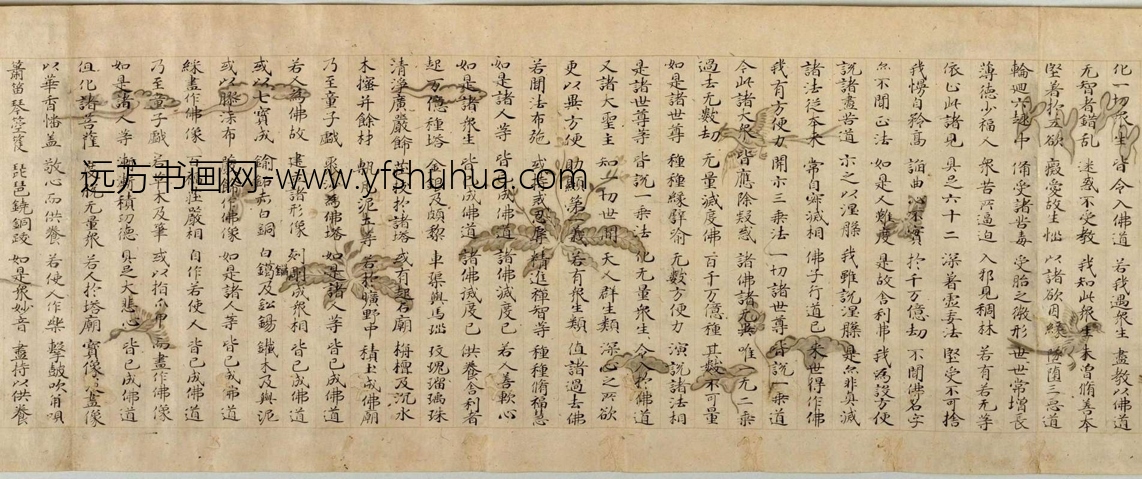 化一切眾生 皆令入佛道 若我遇眾生 盡教以佛道
无智者錯乱 迷惑不受教 我知此眾生 未曾脩善本
堅著於五欲 癡愛故生惱 以諸欲因緣 墜墮三惡道
輪迴六趣中 俻受諸苦毒 受胎之微形 世世常增長
薄徳少福人 眾苦所逼迫 入邪見稠林 若有若无等
依止此諸見 具足六十二 深著虛妄法 堅受不可捨
我慢自矜高 諂曲心不實 於千万億劫 不聞佛名字
亦不聞正法 如是人難度 是故舍利弗 我為設方便
說諸盡苦道 示之以涅槃 我雖說涅槃 是亦非真滅
諸法從本来 常自寂滅相 佛子行道已 来世得作佛
我有方便力 開示三乘法 一切諸世尊 皆說一乘道
今此諸大眾 皆應除疑惑 諸佛語无異 唯一无二乘
過去无數劫 无量滅度佛 百千万億種 其數不可量
如是諸世尊 種種緣譬喻 无數方便力 演說諸法相
是諸世尊等 皆說一乘法 化无量眾生 令入於佛道
又諸大聖主 知一切世間 天人群生類 深心之所欲
更以異方便 助顯第一義 若有眾生類 值諸過去佛
若聞法布施 或持戒忍辱 精進禪智等 種種脩福慧
如是諸人等 皆已成佛道 諸佛滅度已 若人善軟心
如是諸眾生 皆已成佛道 諸佛滅度已 供養舍利者
起万億種塔 金銀及頗梨 車𤦲與馬瑙 玫瑰瑠璃珠
清淨廣嚴餝 莊挍於諸塔 或有起石廟 栴檀及沉水
木櫁并餘材 塼瓦泥土等 若於曠野中 積土成佛廟
乃至童子戲 聚沙為佛塔 如是諸人等 皆已成佛道
若人為佛故 建立諸形像 刻雕成眾相 皆已成佛道
或以七寶成 鍮鉐赤白銅 白鑞及鈆錫 鐵木及與泥
或以膠漆布 嚴餝作佛像 如是諸人等 皆已成佛道
綵畫作佛像 百福莊嚴相 自作若使人 皆已成佛道
乃至童子戲 若草木及筆 或以指爪甲 而畫作佛像
如是諸人等 漸漸積功徳 具足大悲心 皆已成佛道
但化諸菩薩 度脫无量眾 若人於塔廟 寶像及畫像
以華香幡蓋 敬心而供養 若使人作樂 擊鼓吹角唄
簫笛琴箜篌 琵琶鐃銅鈸 如是眾妙音 盡持以供養
远方书画网-www.yfshuhua.com